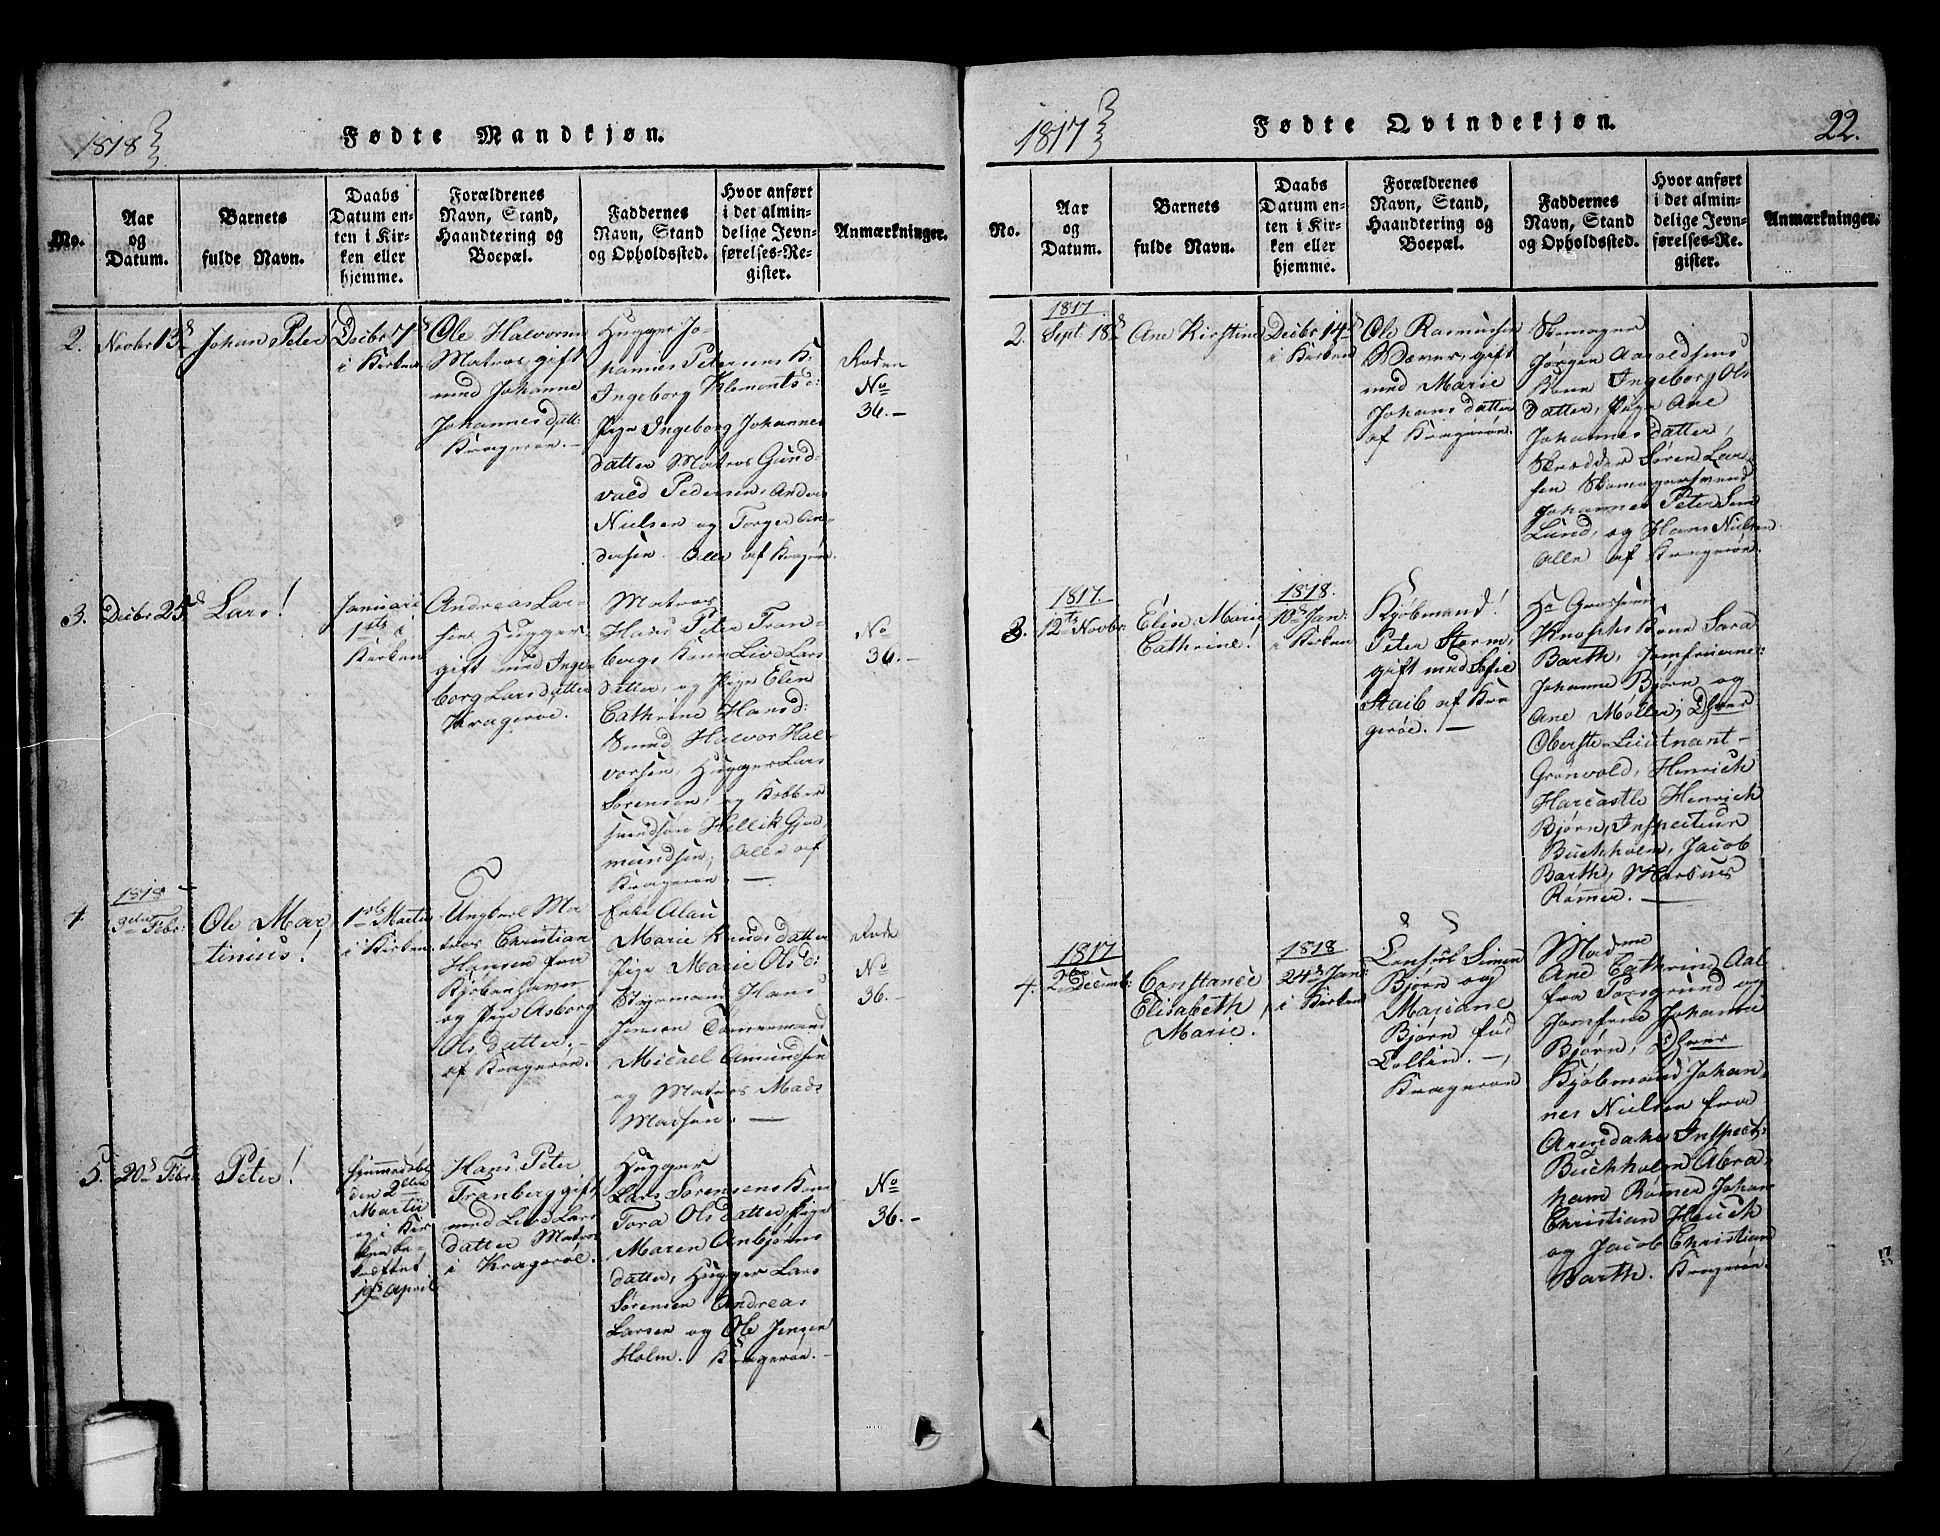 1818
Fødte Mandkjøn.
No.
Aar
og
Datum.
Barnets
fulde Navn.
Daabs
Datum en-
ten i Kir-
ken eller
hjemme.
Forældrenes
Navn, Stand,
Haandtering og
Boepæl.
Faddernes
Navn, Stand
og Opholdssted.
Hvor anført
i det almin-
delige Jevn-
førelses-Re-
gister.
Anmærkninger.
2.
Novbr 13d
Johan Peter
Decbr 7d
i Kirken
Ole Halvorsen
Matros, gift
med Johanne
Johannesdatt:
Kragerøn.
Hugger Jo-
hannes Petersens K.
Ingeborg Klementsd:
Pige Ingeborg Johannes
datter Matros Gund-
vald Pedersen, Anders
Nielsen og Torger
dersen. Alle af Kragerøn.
No
36.-
3.
Decbr 25d
Lars!
Januari
1ste i
Kirken
Andreas Lar-
sen Hugger
gift med Inge-
borg Larsdatter
Kragerøe.
Matros
Hans Peter Tran-
bergs Kone Livd Lars
datter, og Pige Elen
Cathrine Hansd:
Smed Halvor Hal-
vorsen, Hugger Lars
Sørensen, og Kobber
smedsøn Hellik Gjed-
mundsen, Alle af
Kragerøn
No
36.-
4.
1818
3die Febr:
Ole Mar-
tinius!
1ste Martii
i Kirken
Ungkarl Ma-
tros Christian
Hansen fra
Kjøbenhavn
og Pige Asborg
Olsdatter.
af Kragerøn.
Enke Alau
Marie Knudsdatter
Pige Marie Olsd:
Styrmand Hans
Jensen Tømmermand
Micael Amundsen
og Matros Mads
Madsen.
No
36.-
5.
20d Febr
Peter!
hjemmedøbt
den 2den
Martii
og i Kir
ken be-
kræftet
19d April
Hans Peter
Tranberg gift
med Livd Lars
datter Matros
i Kragerøe.
Hugger
Lars Sørensens Kone
Tora Olsdatter, Pige
Maren Anbjørns
datter, Hugger Lars
Sørensen Andreas
Larsen og Ole Jensen
Holm. Kragerøn.
No
36.-
1817
Fødte Qvindekjøn.
22.
No.
Aar
og
Datum.
Barnets
fulde Navn.
Daabs
Datum en-
ten i Kir-
ken eller
hjemme.
Forældrenes
Navn, Stand,
Haandtering og
Boepæl.
Faddernes
Navn, Stand
og Opholdssted.
Hvor anført
i det almin-
delige Jevn-
førelses-Re-
gister.
Anmærkninger.
2.
1817.
Septr 18d
Ane Kirstine
Decbr 14d
i Kirken
Ole Rasmussen
Væver, gift
med Marie
Johansdatter
af Kragerøn.
Skomager
Jørgen Aasoldsens
Kone Ingeborg Ols
datter, Pige Ane
Johannesdatter,
Skrædder Søren Lar
sen Skomagersvend
Johannes Peter Sem
Lund, og Hans Nielsen
Alle af Kragerøn.
3.
1817.
12te Novbr:
Elise Marie
Cathrine!
1818.
10d Jan:
i Kirken
Kjøbmand!
Peter Storm,
gift med Sofie
Staib af Kra
gerøe.
Kone Sara
Barth, Jomfruerne:
Johanne Bjørn og
Ane Møller, DHrer
Oberste-Lieutnant
Grønvold, Henrich
Harcastle Henrich
Bjørn, Inspecteur
Buchholm, Jacob
Barth, Markus
Rømer.
4.
1817
2den Decemb:
Constance
Elisabeth
Marie.
1818
24d Jan:
i Kirken
Consul Simen
Bjørn og
Mariane
Bjørn fød
Collin.
Kragerøn
Madme
Ane Cathrine Aal
fra Porsgrund og
Jomfrue Johanne
Bjørn, DHrer
Kjøbmand Johan-
nes Nielsen fra
Arendahl, Inspect:
Buchholm Abra-
ham Rømer Johan
Christian Hauch
og Jacob Christian
Barth. Kragerøn.